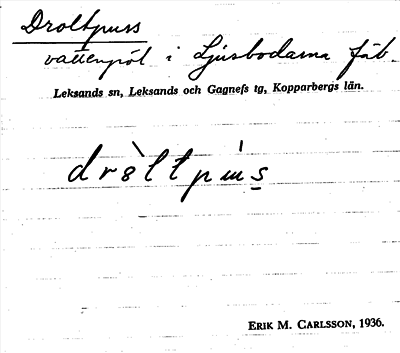 Droltpuss
vattenpöl i Ljusbodarna fäb.
Leksands sn, Leksands och Gagnefs tg, Kopparbergs län.
dr8̀ltpúus̲
ERIK M. CARLSSON, 1936.